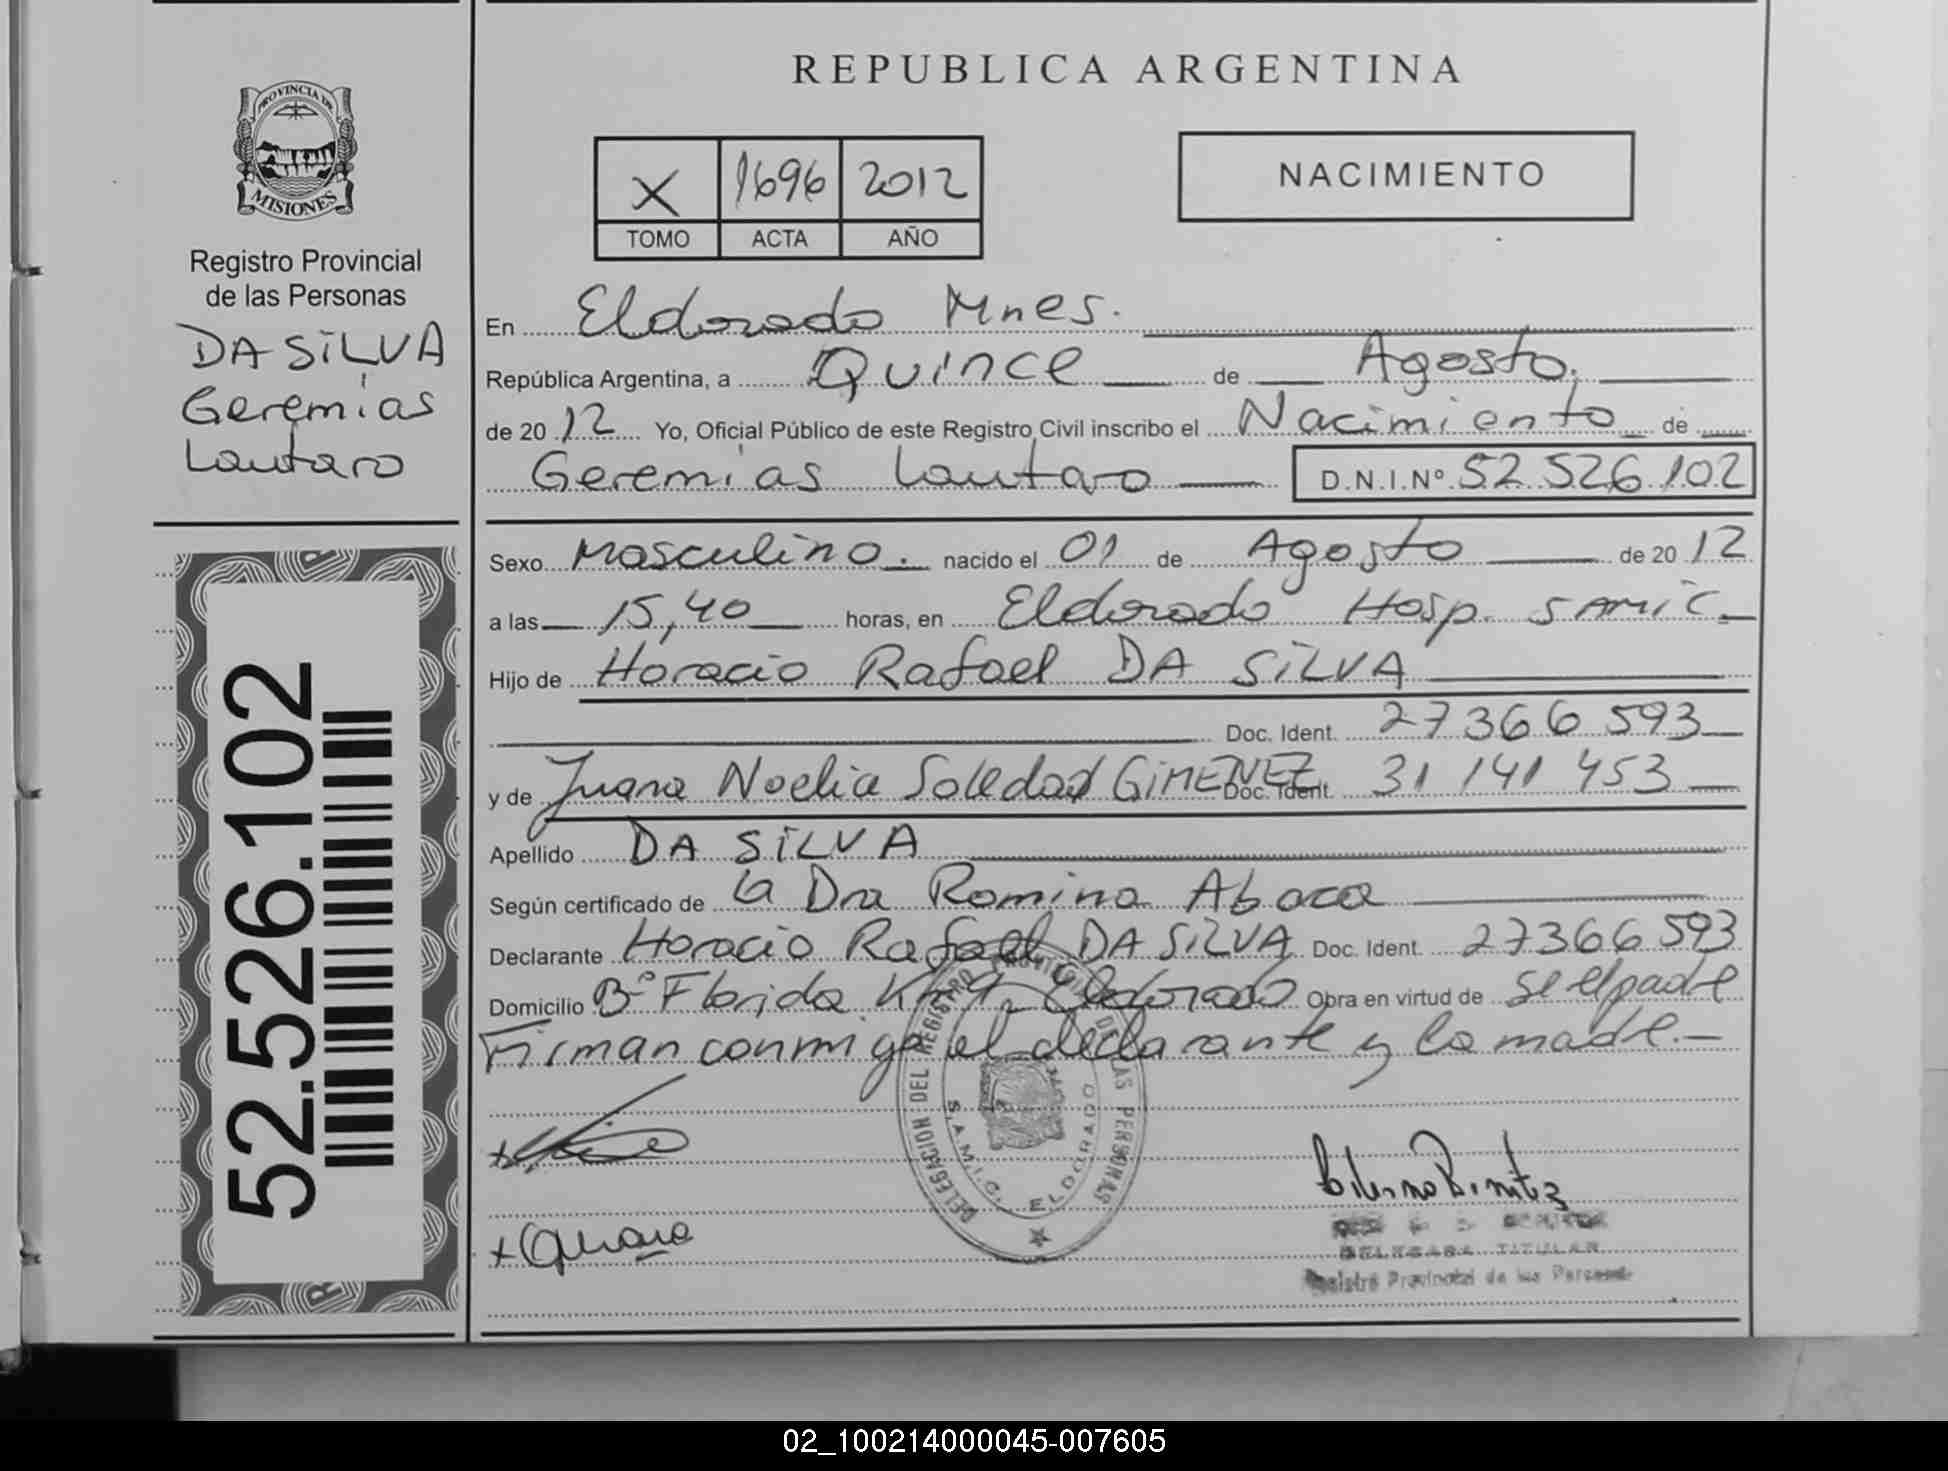 PROVINCIA DE
MISIONES
Registro Provincial
de las Personas
DA SILVA
Geremias
Lautaro
52.526.102
REPUBLICA ARGENTINA
X 1696 2012
TOMO ACTA AÑO
NACIMIENTO
En Eldorado Mnes.
República Argentina, a Quince de Agosto
de 2012 Yo, Oficial Público de este Registro Civil inscribo el Nacimiento de
Geremias Lautaro D.N.I.Nº 52.526.102
Sexo Masculino. nacido el 01 de Agosto de 2012
a las 15,40 horas, en Eldorado Hosp. SAMIC
Hijo de Horacio Rafael DA SILVA
Doc. Ident. 27366593
y de Juana Noelia Soledad GIMENEZ Doc. Ident. 31 141 453
Apellido DA SILVA
Según certificado de la Dra Romina Abaca
Declarante Horacio Rafael DA SILVA Doc. Ident. 27366593
Domicilio Bº Florida Km 9, Eldorado Obra en virtud de se el padre
Firman conmigo el declarante y la madre.-
DELEGACION DEL REGISTRO PROVINCIAL DE LAS PERSONAS
S.A.M.I.C. ELDORADO
DELEGADA TITULAR
Registro Provincial de las Personas
02_100214000045-007605